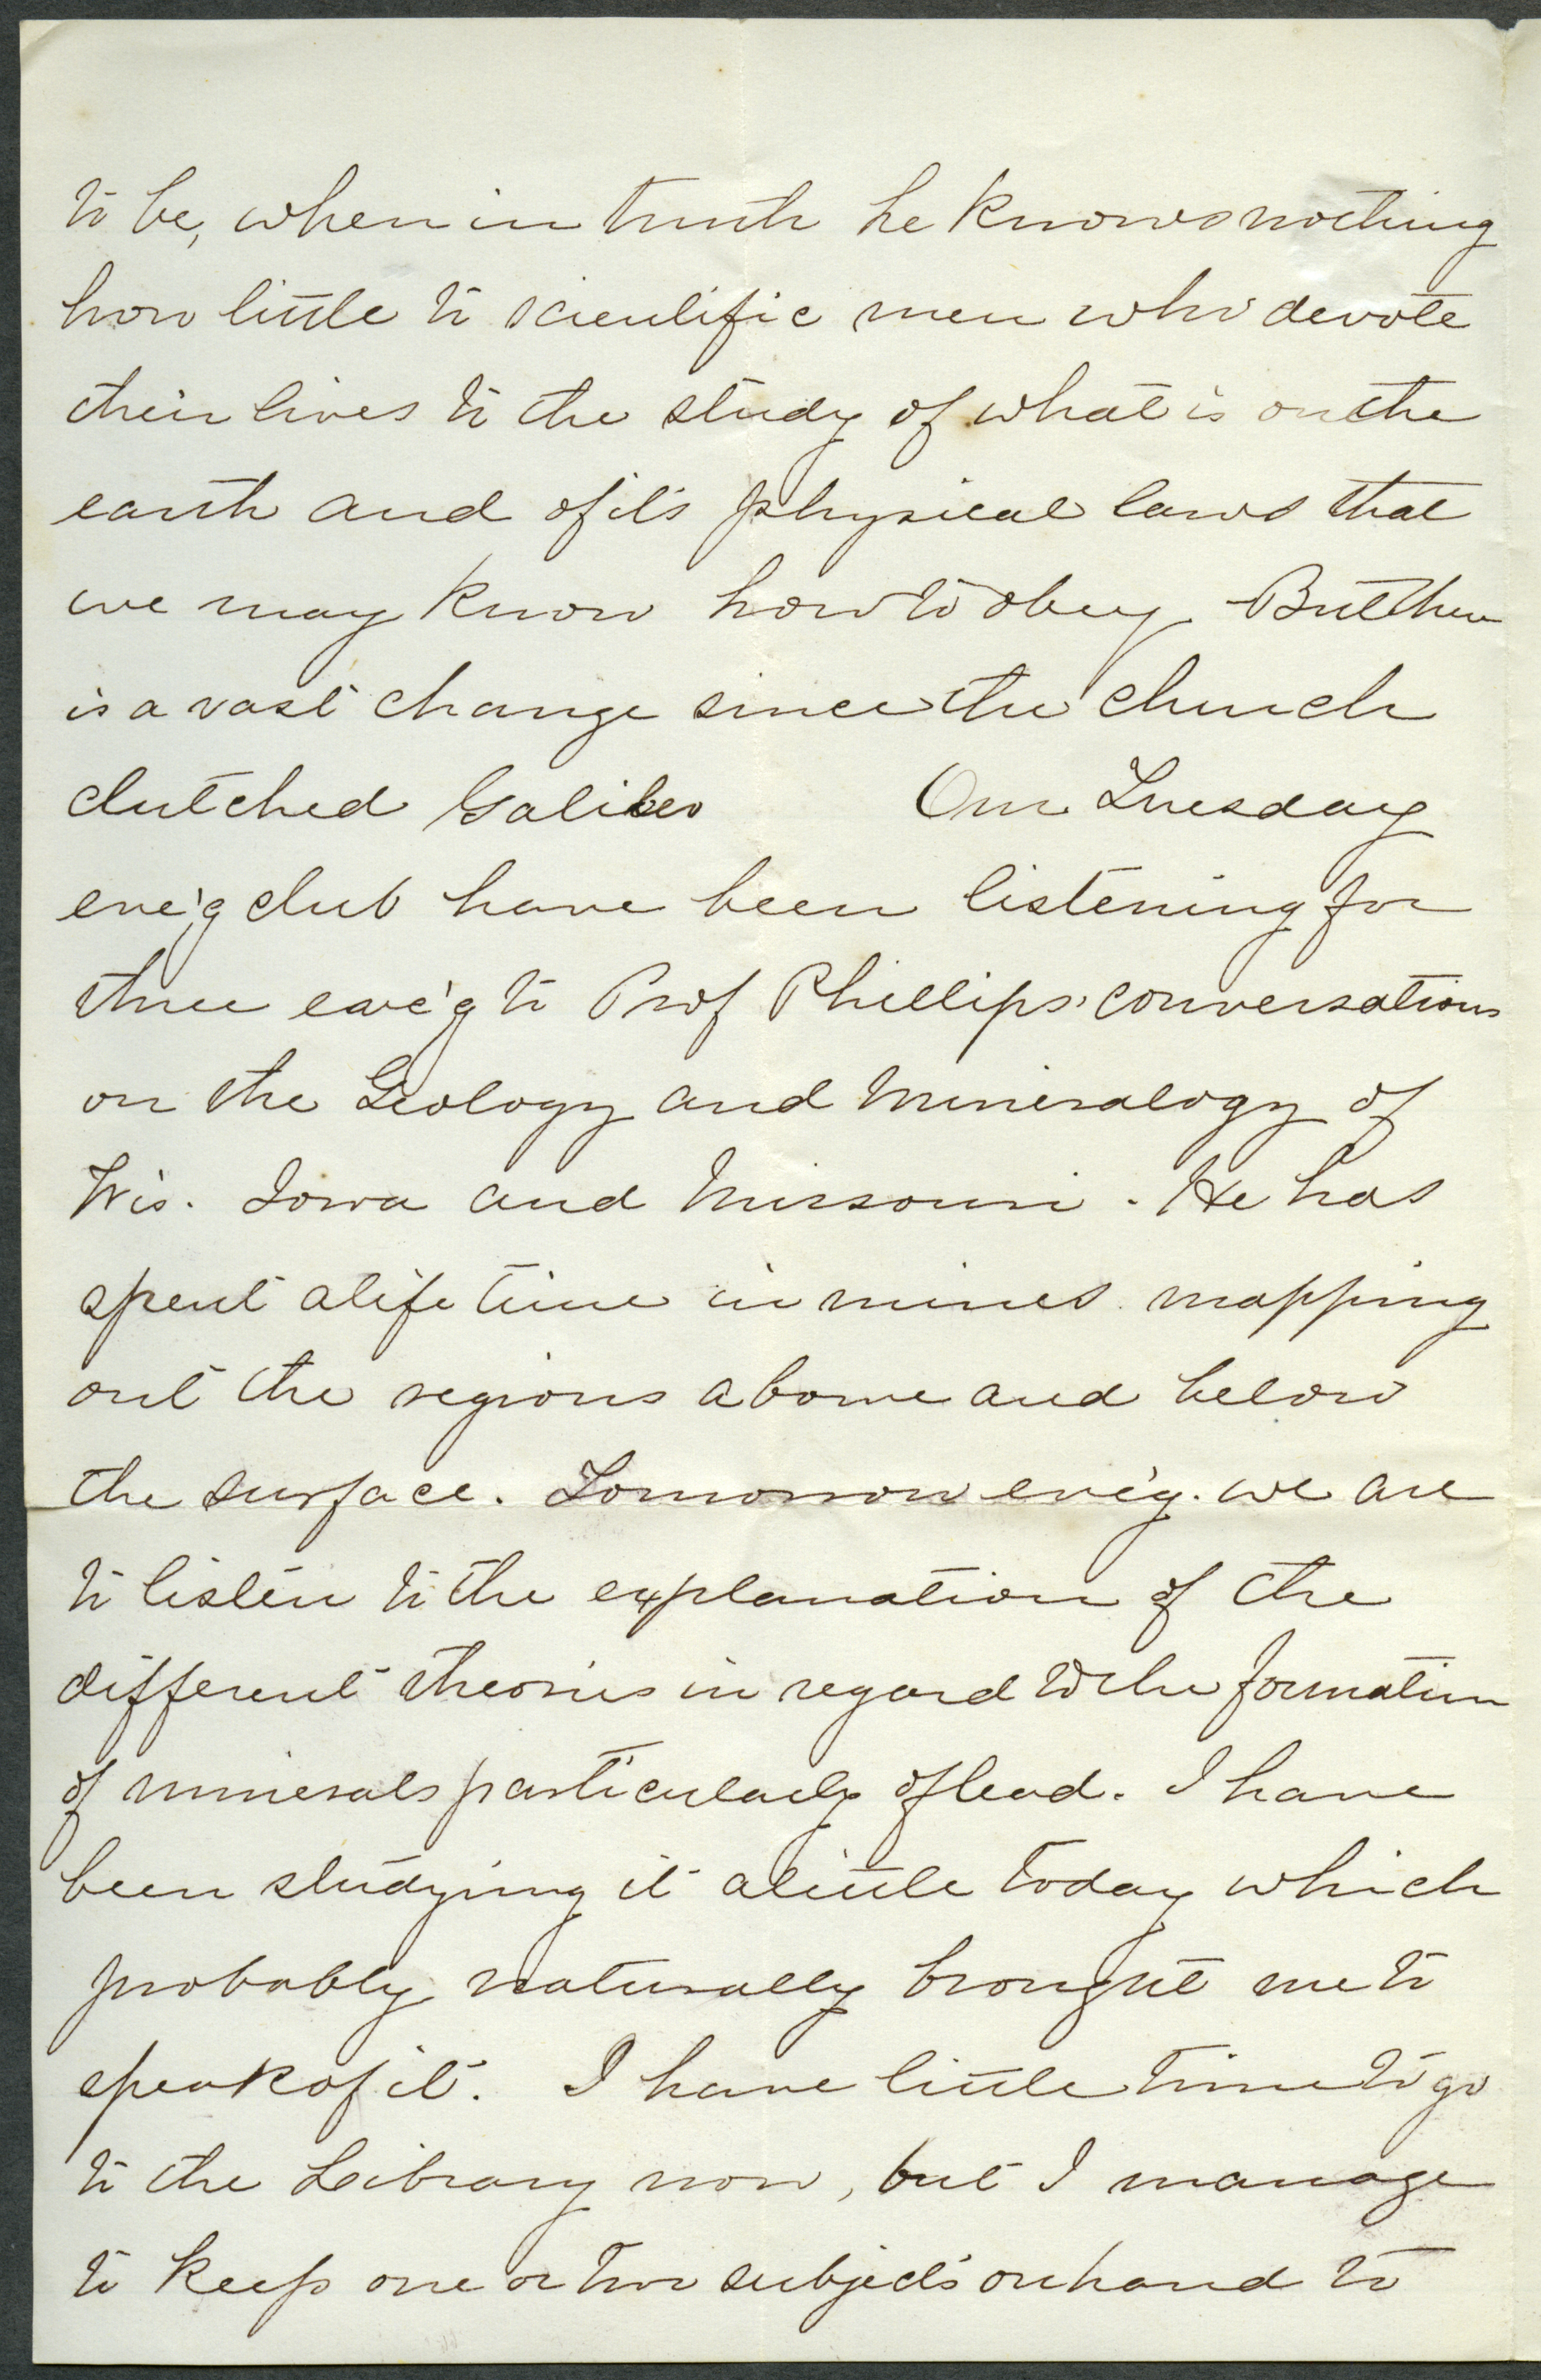 to be, when in truth he knows nothing
how little to scientific men who devote
their lives to the study of what is on the
earth and of it's physical laws that
we may know how to obey. But there
is a vast change since the church
clutched Galileo Our Tuesday
eve'g club have been listening for
three eve'g to Prof Phillips' conversations
on the Geology and Mineralogy of
Wis. Iowa and Missouri. He has
spent a life time in mines mapping
out the regions above and below
the surface. Tomorrow eve'g. we are
to listen to the explanation of the
different theories in regard to the formation
of minerals particularly of lead. I have
been studying it a little today which
probably naturally brought me to
speak of it. I have little time to go
to the Library now, but I manage
to keep one or two subjects on hand to